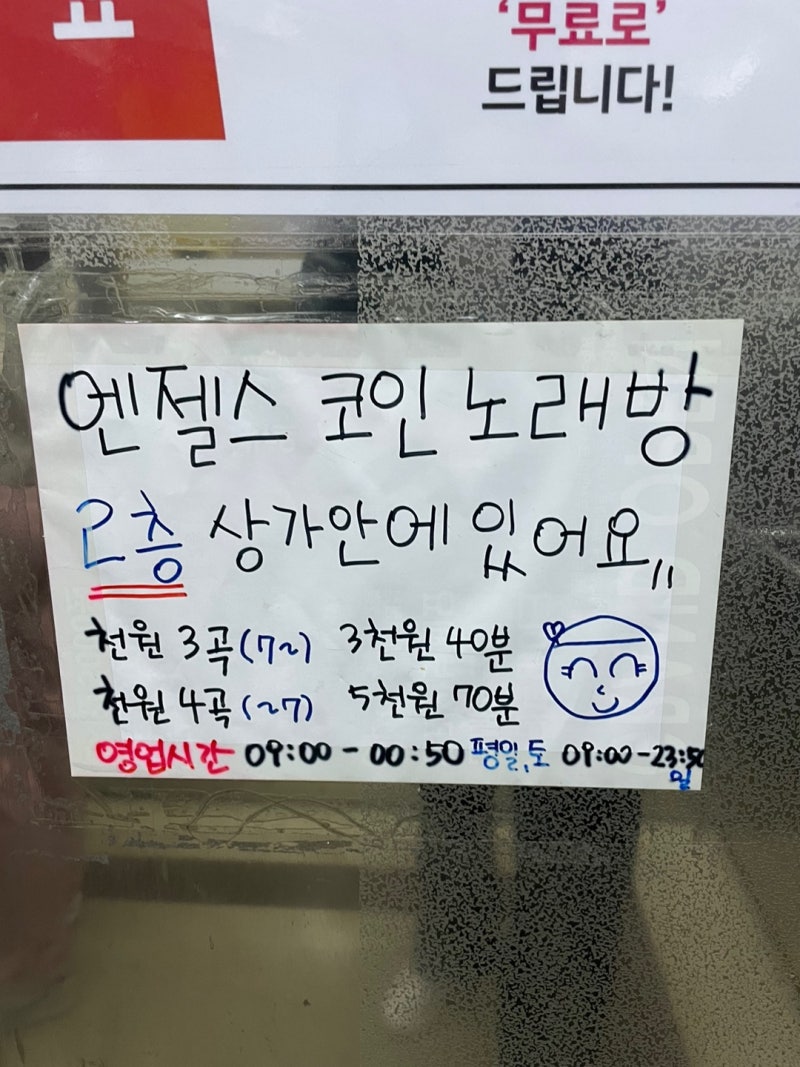 요
'무료로'
드립니다!
엔젤스 코인 노래방
2층 상가안에 있어요,,
천원 3곡(7~) 3천원 40분
천원 4곡(~7) 5천원 70분
영업시간 09:00-00:50 평일,토 09:00-23:50
일